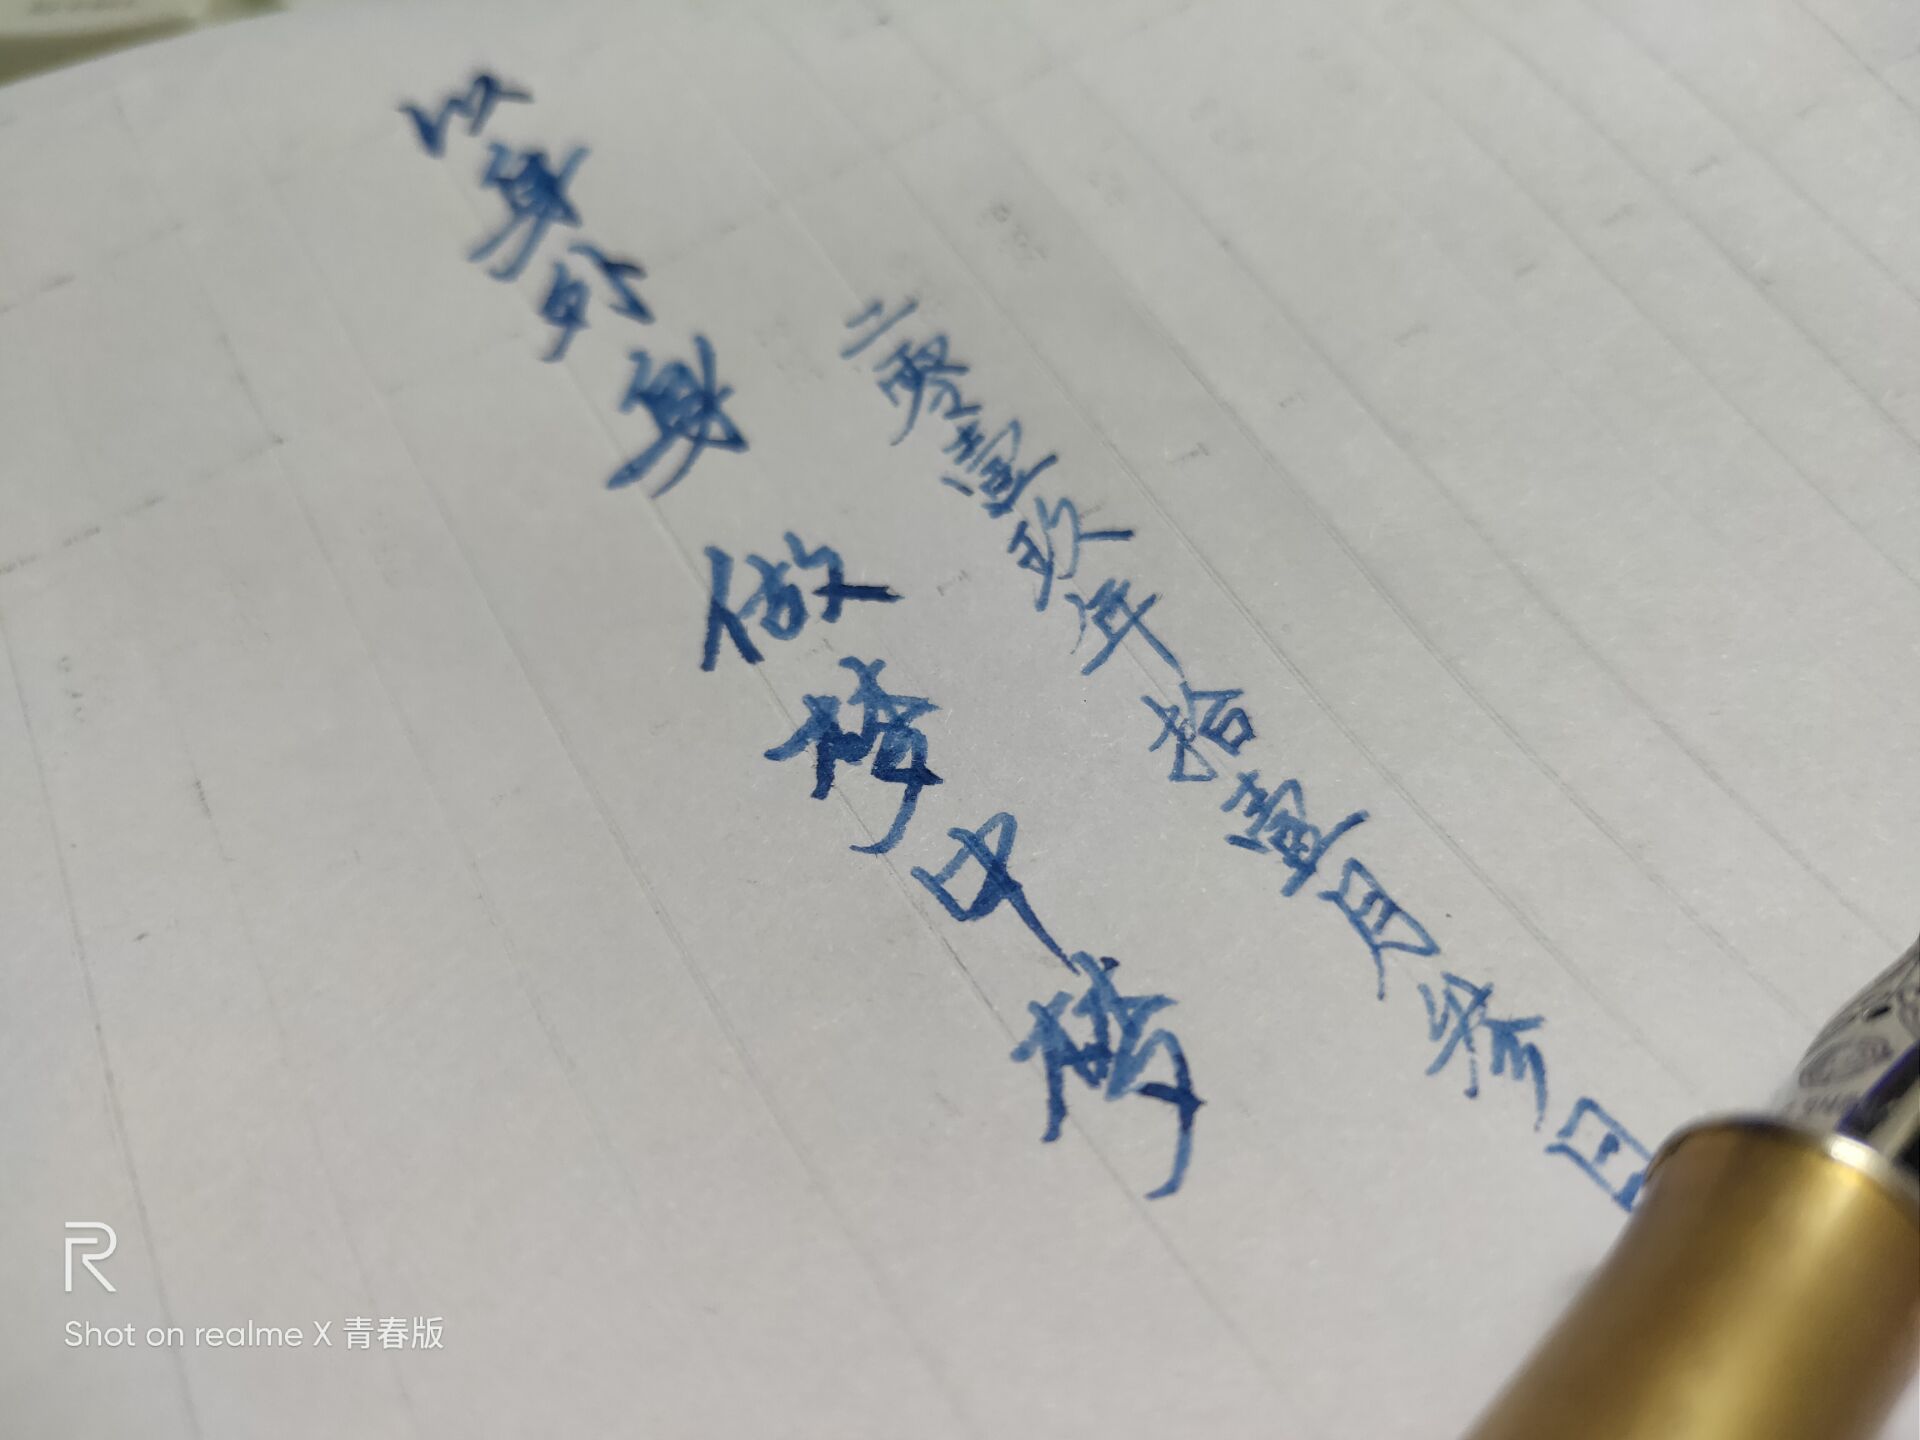 以身外身做梦中梦
二零壹玖年拾壹月叁日
R
Shot on realme X 青春版